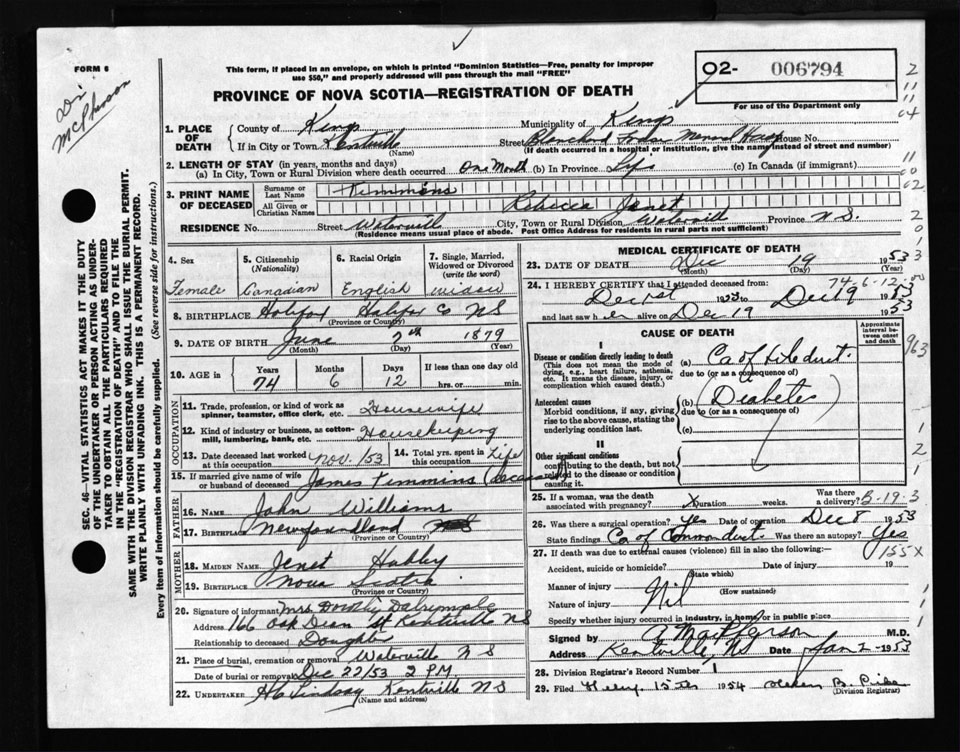 FORM 6
Dr McPherson
This form, if placed in an envelope, on which is printed "Dominion Statistics—Free, penalty for improper
use $50," and properly addressed will pass through the mail "FREE"
O2- 006794
For use of the Department only
PROVINCE OF NOVA SCOTIA—REGISTRATION OF DEATH
1. PLACE OF DEATH
County of Kings Municipality of Kings
If in City or Town Kentville (Name) Street Blanchard Memorial House No.
(If death occurred in a hospital or institution, give the name instead of street and number)
2. LENGTH OF STAY (in years, months and days)
(a) In City, Town or Rural Division where death occurred One Month (b) In Province Life (c) In Canada (if immigrant)
3. PRINT NAME OF DECEASED
Surname or Last Name Timmons
All Given or Christian Names Rebecca Janet
RESIDENCE No. Street Waterville City, Town or Rural Division Waterville Province N.S.
(Residence means usual place of abode. Post Office Address for residents in rural parts not sufficient)
SEC. 46—VITAL STATISTICS ACT MAKES IT THE DUTY
OF THE UNDERTAKER OR PERSON ACTING AS UNDER-
TAKER TO OBTAIN ALL THE PARTICULARS REQUIRED
IN THE "REGISTRATION OF DEATH" AND TO FILE THE
SAME WITH THE DIVISION REGISTRAR WHO SHALL ISSUE THE BURIAL PERMIT.
WRITE PLAINLY WITH UNFADING INK. THIS IS A PERMANENT RECORD.
Every item of information should be carefully supplied. (See reverse side for instructions.)
4. Sex Female
5. Citizenship (Nationality) Canadian
6. Racial Origin English
7. Single, Married, Widowed or Divorced (write the word) Widow
8. BIRTHPLACE Halifax Halifax Co NS
(Province or Country)
9. DATE OF BIRTH June 7th 1879
(Month) (Day) (Year)
10. AGE in Years 74 Months 6 Days 12 If less than one day old hrs. or min.
OCCUPATION
11. Trade, profession, or kind of work as spinner, teamster, office clerk, etc. Housewife
12. Kind of industry or business, as cotton-mill, lumbering, bank, etc. Housekeeping
13. Date deceased last worked at this occupation Nov. /53 14. Total yrs. spent in this occupation Life
15. If married give name of wife or husband of deceased James Timmins (deceased)
FATHER
16. Name John Williams
17. Birthplace Newfoundland
(Province or Country)
MOTHER
18. MAIDEN NAME Jenet
19. BIRTHPLACE Nova Scotia
(Province or Country)
20. Signature of informant Mrs. Dorothy Dalrymple
Address 166 St Kentville NS
Relationship to deceased Daughter
21. Place of burial, cremation or removal Waterville N S
Date of burial or removal Dec 22/53 2 PM
22. UNDERTAKER H C Lindsay Kentville NS
(Name and address)
MEDICAL CERTIFICATE OF DEATH
23. DATE OF DEATH Dec 19 1953
(Month) (Day) (Year)
24. I HEREBY CERTIFY that I attended deceased from: 74-6-12
Dec 1st 1953 to Dec 19 1953
and last saw her alive on Dec 19 1953
CAUSE OF DEATH
Approximate interval between onset and death
I
Disease or condition directly leading to death
(This does not mean the mode of dying, e.g., heart failure, asthenia, etc. It means the disease, injury, or complication which caused death.)
(a) Ca of bile duct.
due to (or as a consequence of)
Antecedent causes
Morbid conditions, if any, giving rise to the above cause, stating the underlying condition last.
(b) (Diabetes)
due to (or as a consequence of)
(c)
II
Other significant conditions
contributing to the death, but not related to the disease or condition causing it.
25. If a woman, was the death associated with pregnancy? X Duration weeks. Was there a delivery? B-19-3
26. Was there a surgical operation? Yes Date of operation Dec 8 1953
State findings Ca of Common duct. Was there an autopsy? Yes
155X
27. If death was due to external causes (violence) fill in also the following:—
Accident, suicide or homicide? (State which) Date of injury 19
Manner of injury (How sustained)
Nature of injury Nil
Specify whether injury occurred in industry, in home or in public place
Signed by MacPherson M.D.
Address Kentville, NS Date Jan 2 1953
28. Division Registrar's Record Number 1
29. Filed 15 1954 Helen B. (Division Registrar)